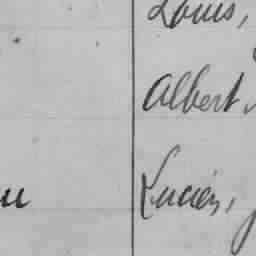 Louis,
Albert,
Lucien,